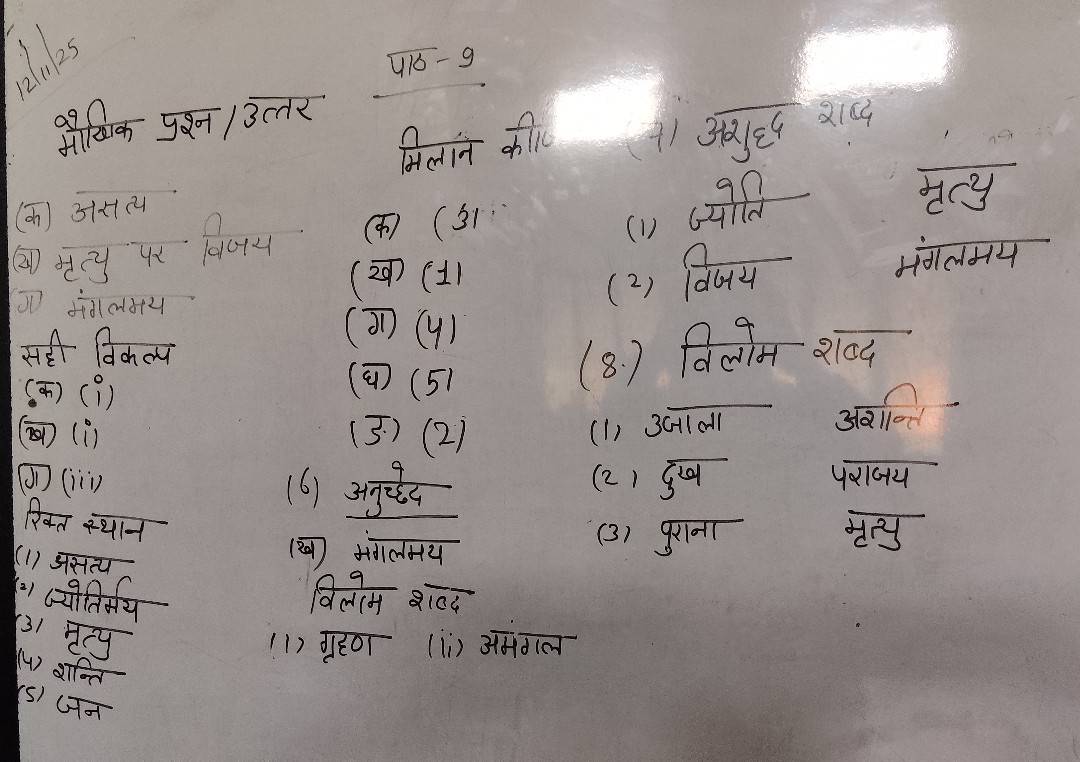 12/11/25
पाठ - 9
मौखिक प्रश्न / उत्तर
(क) असत्य
(ख) मृत्यु पर विजय
(ग) मंगलमय
सही विकल्प
(क) (i)
(ख) (i)
(ग) (iii)
रिक्त स्थान
(1) असत्य
(2) ज्योतिर्मय
(3) मृत्यु
(4) शान्ति
(5) जन
मिलान
(क) (3)
(ख) (1)
(ग) (4)
(घ) (5)
(ङ) (2)
(6) अनुच्छेद
(ख) मंगलमय
विलोम शब्द
(i) गृहण (ii) अमंगल
अशुद्ध शब्द
(1) ज्योति मृत्यु
(2) विजय मंगलमय
(8.) विलोम शब्द
(1) उजाला अशान्ति
(2) दुख पराजय
(3) पुराना मृत्यु